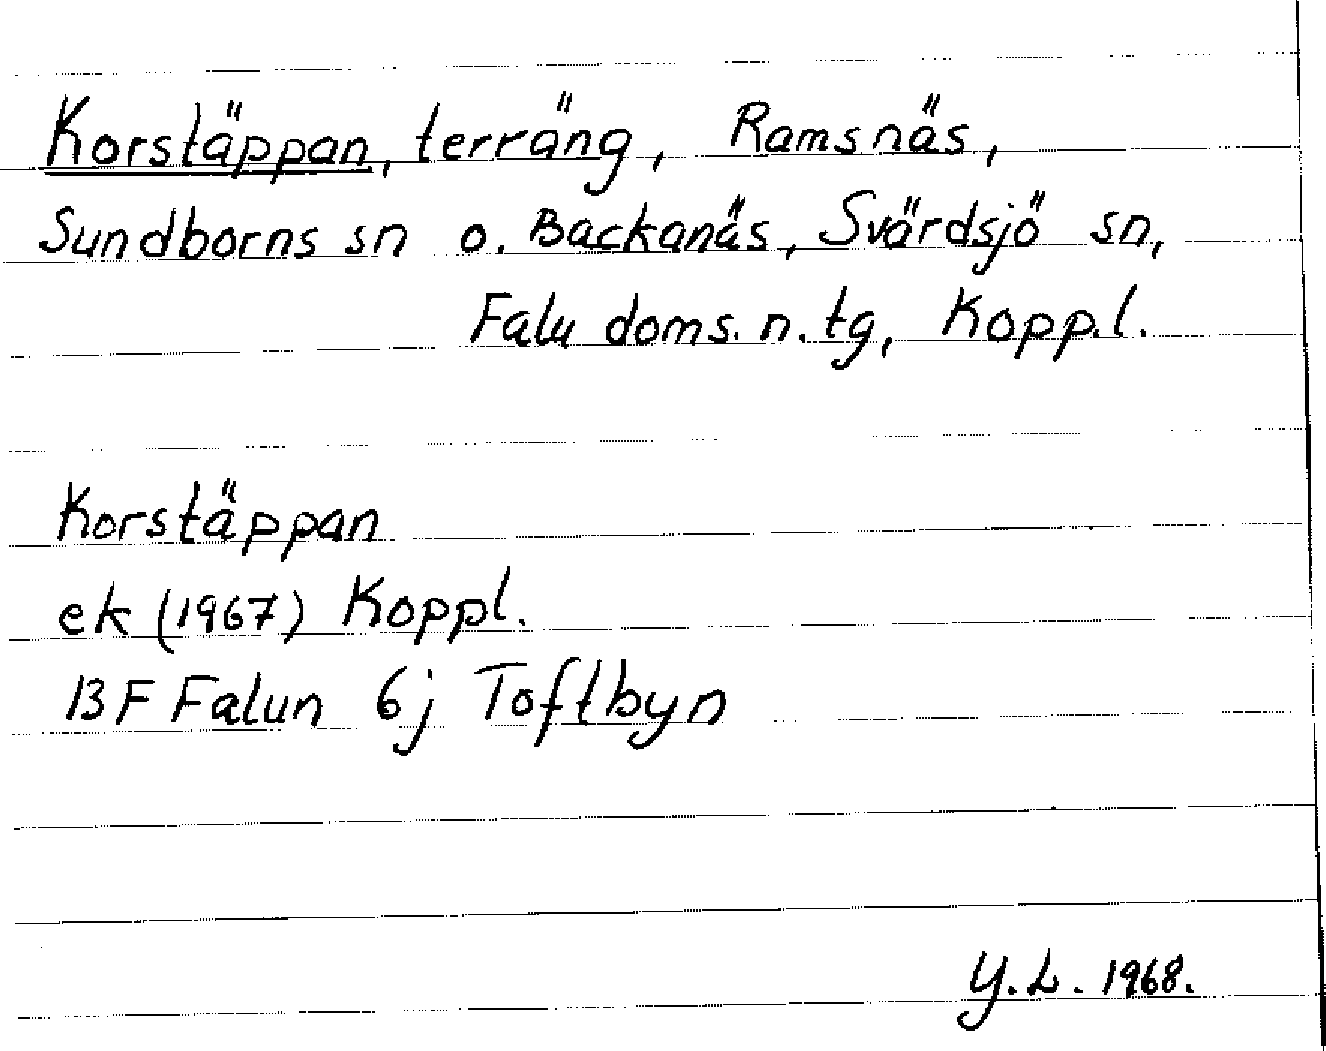 Korstäppan, terräng, Ramsnäs,
Sundborns sn o. Backanäs, Svärdsjö sn,
Falu doms. n. tg, Kopp.l.
Korstäppan
ek (1967) Koppl.
13 F Falun 6j Toftbyn
Y.L. 1968.